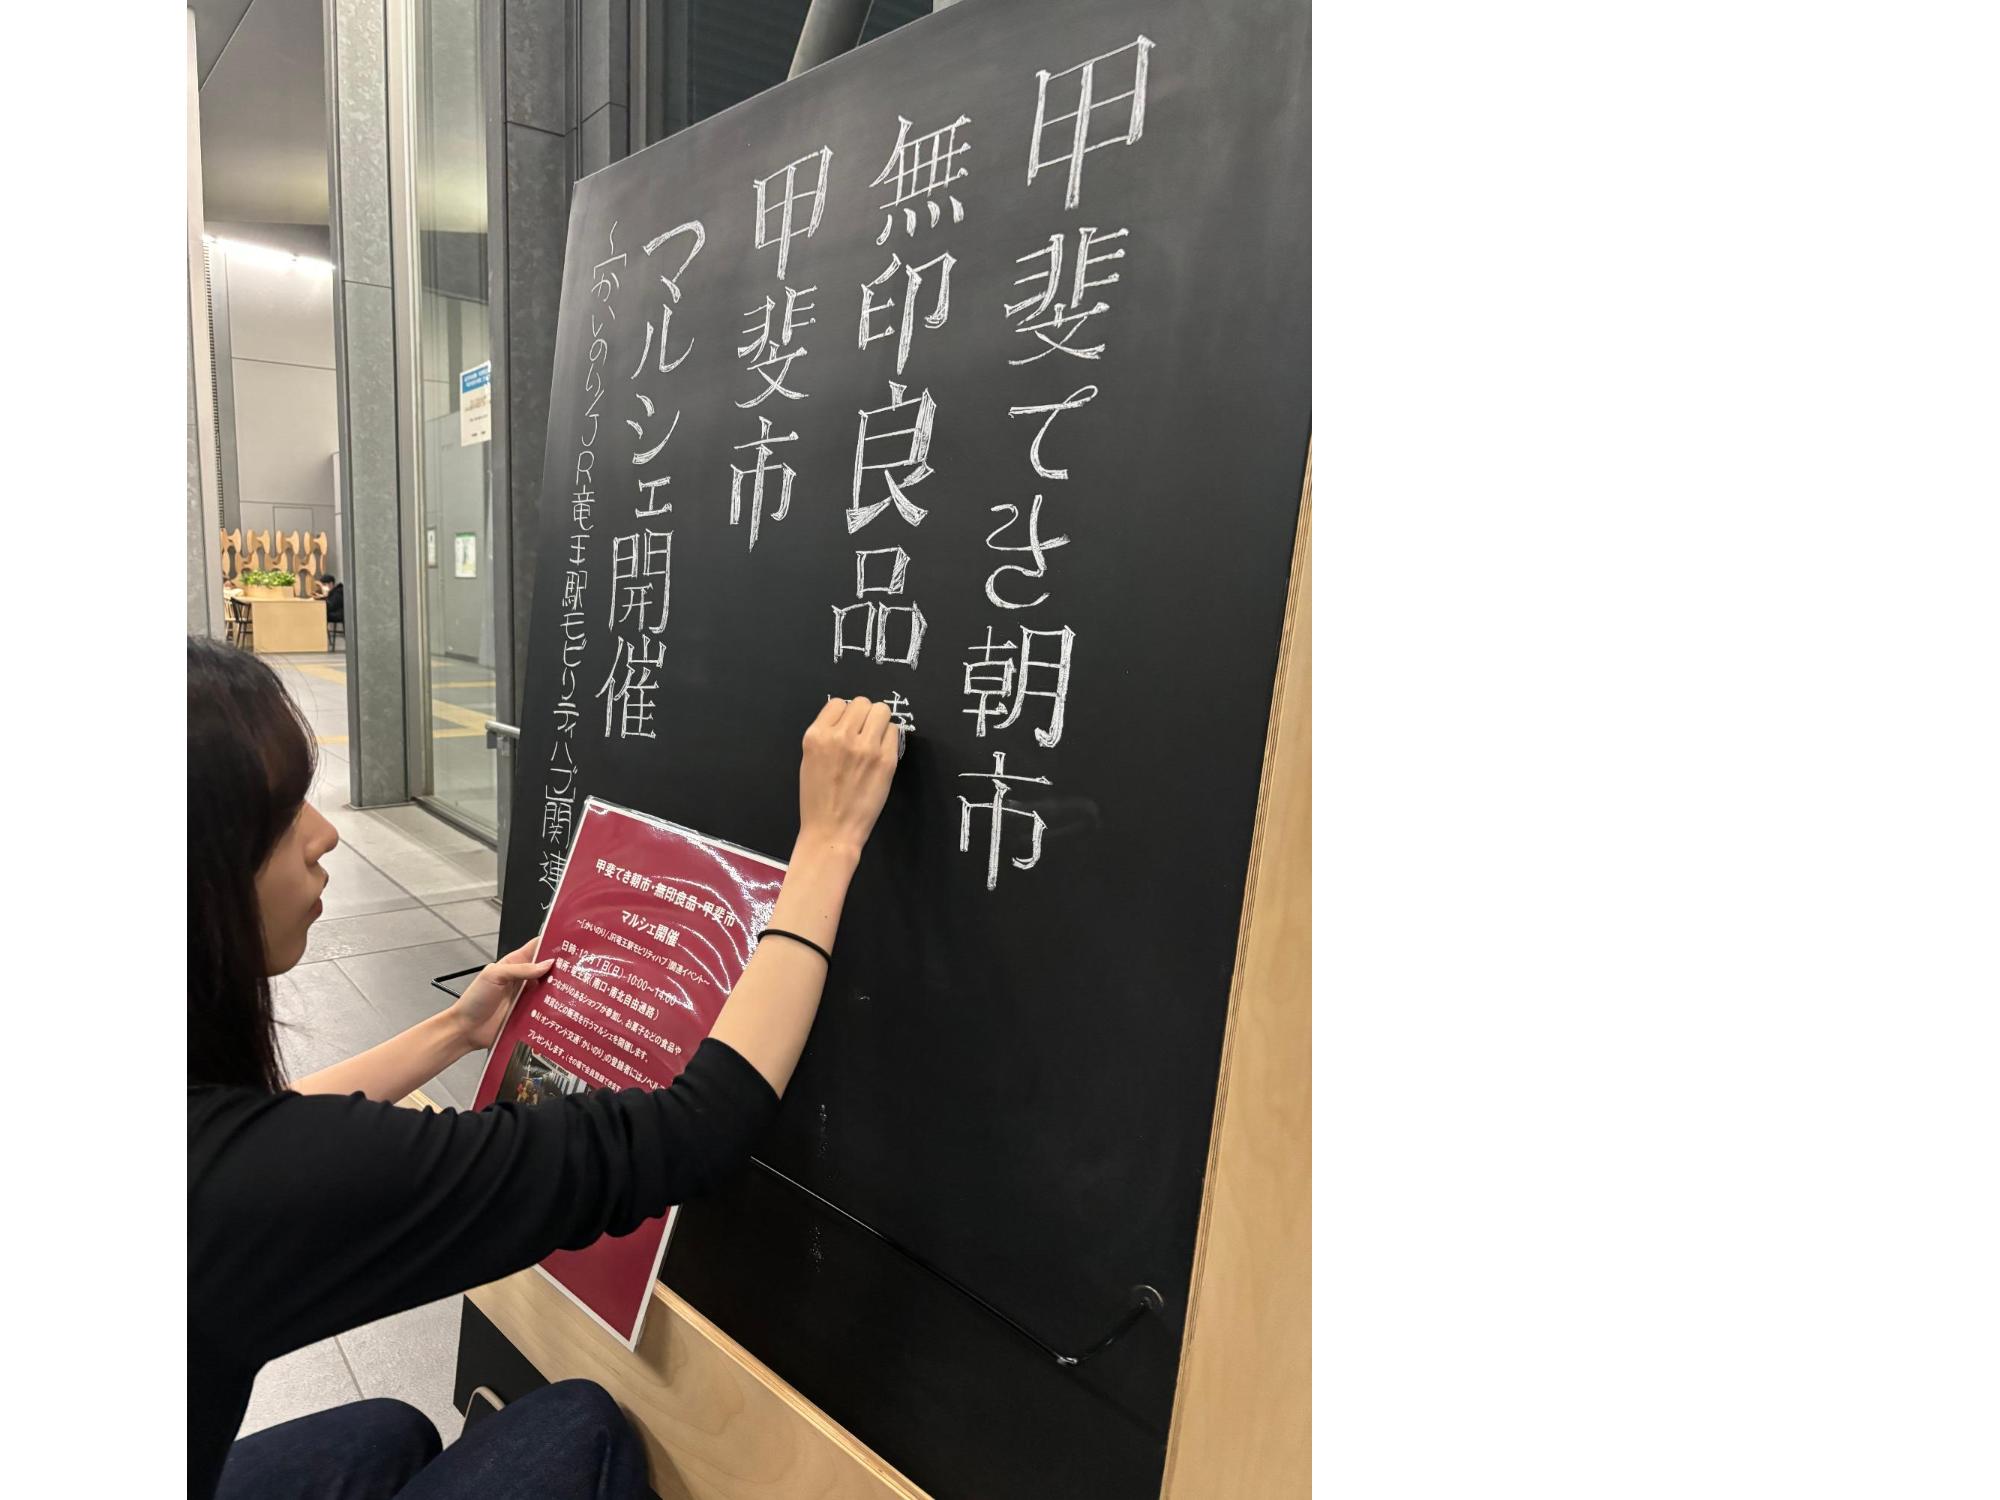 甲斐てき朝市
無印良品
甲斐市
マルシェ開催
～「かいのり/JR竜王駅モビリティハブ」関連
甲斐てき朝市・無印良品・甲斐市
マルシェ開催
～「かいのり/JR竜王駅モビリティハブ」関連イベント～
日時：12月1日(日) 10:00～14:00
場所：竜王駅(南口・南北自由通路)
●つながりのあるショップが参加し、お菓子などの食品や
雑貨などの販売を行うマルシェを開催します。
●AIオンデマンド交通「かいのり」の登録者にはノベル
プレゼントします。(その場で会員登録でき